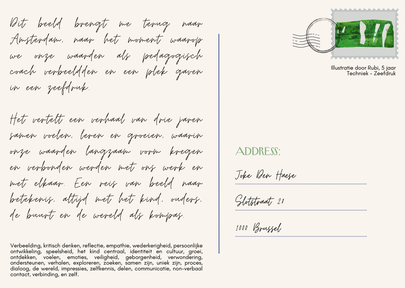 Dit beeld brengt me terug naar
Amsterdam, naar het moment waarop
we onze waarden als pedagogisch
coach verbeeldden en een plek gaven
in een zeefdruk.
Het vertelt een verhaal van drie jaren
samen voelen, leren en groeien, waarin
onze waarden langzaam vorm kregen
en verbonden werden met ons werk en
met elkaar. Een reis van beeld naar
betekenis, altijd met het kind, ouders,
de buurt en de wereld als kompas.
Verbeelding, kritisch denken, reflectie, empathie, wederkerigheid, persoonlijke
ontwikkeling, speelsheid, het kind centraal, identiteit en cultuur, groei,
ontdekken, voelen, emoties, veiligheid, geborgenheid, verwondering,
ondersteunen, verhalen, exploreren, zoeken, samen zijn, uniek zijn, proces,
dialoog, de wereld, impressies, zelfkennis, delen, communicatie, non-verbaal
contact, verbinding, en zelf.
Illustratie door Rubi, 5 jaar
Techniek - Zeefdruk
ADDRESS:
Joke Den Haese
Slotstraat 28
1000 Brussel